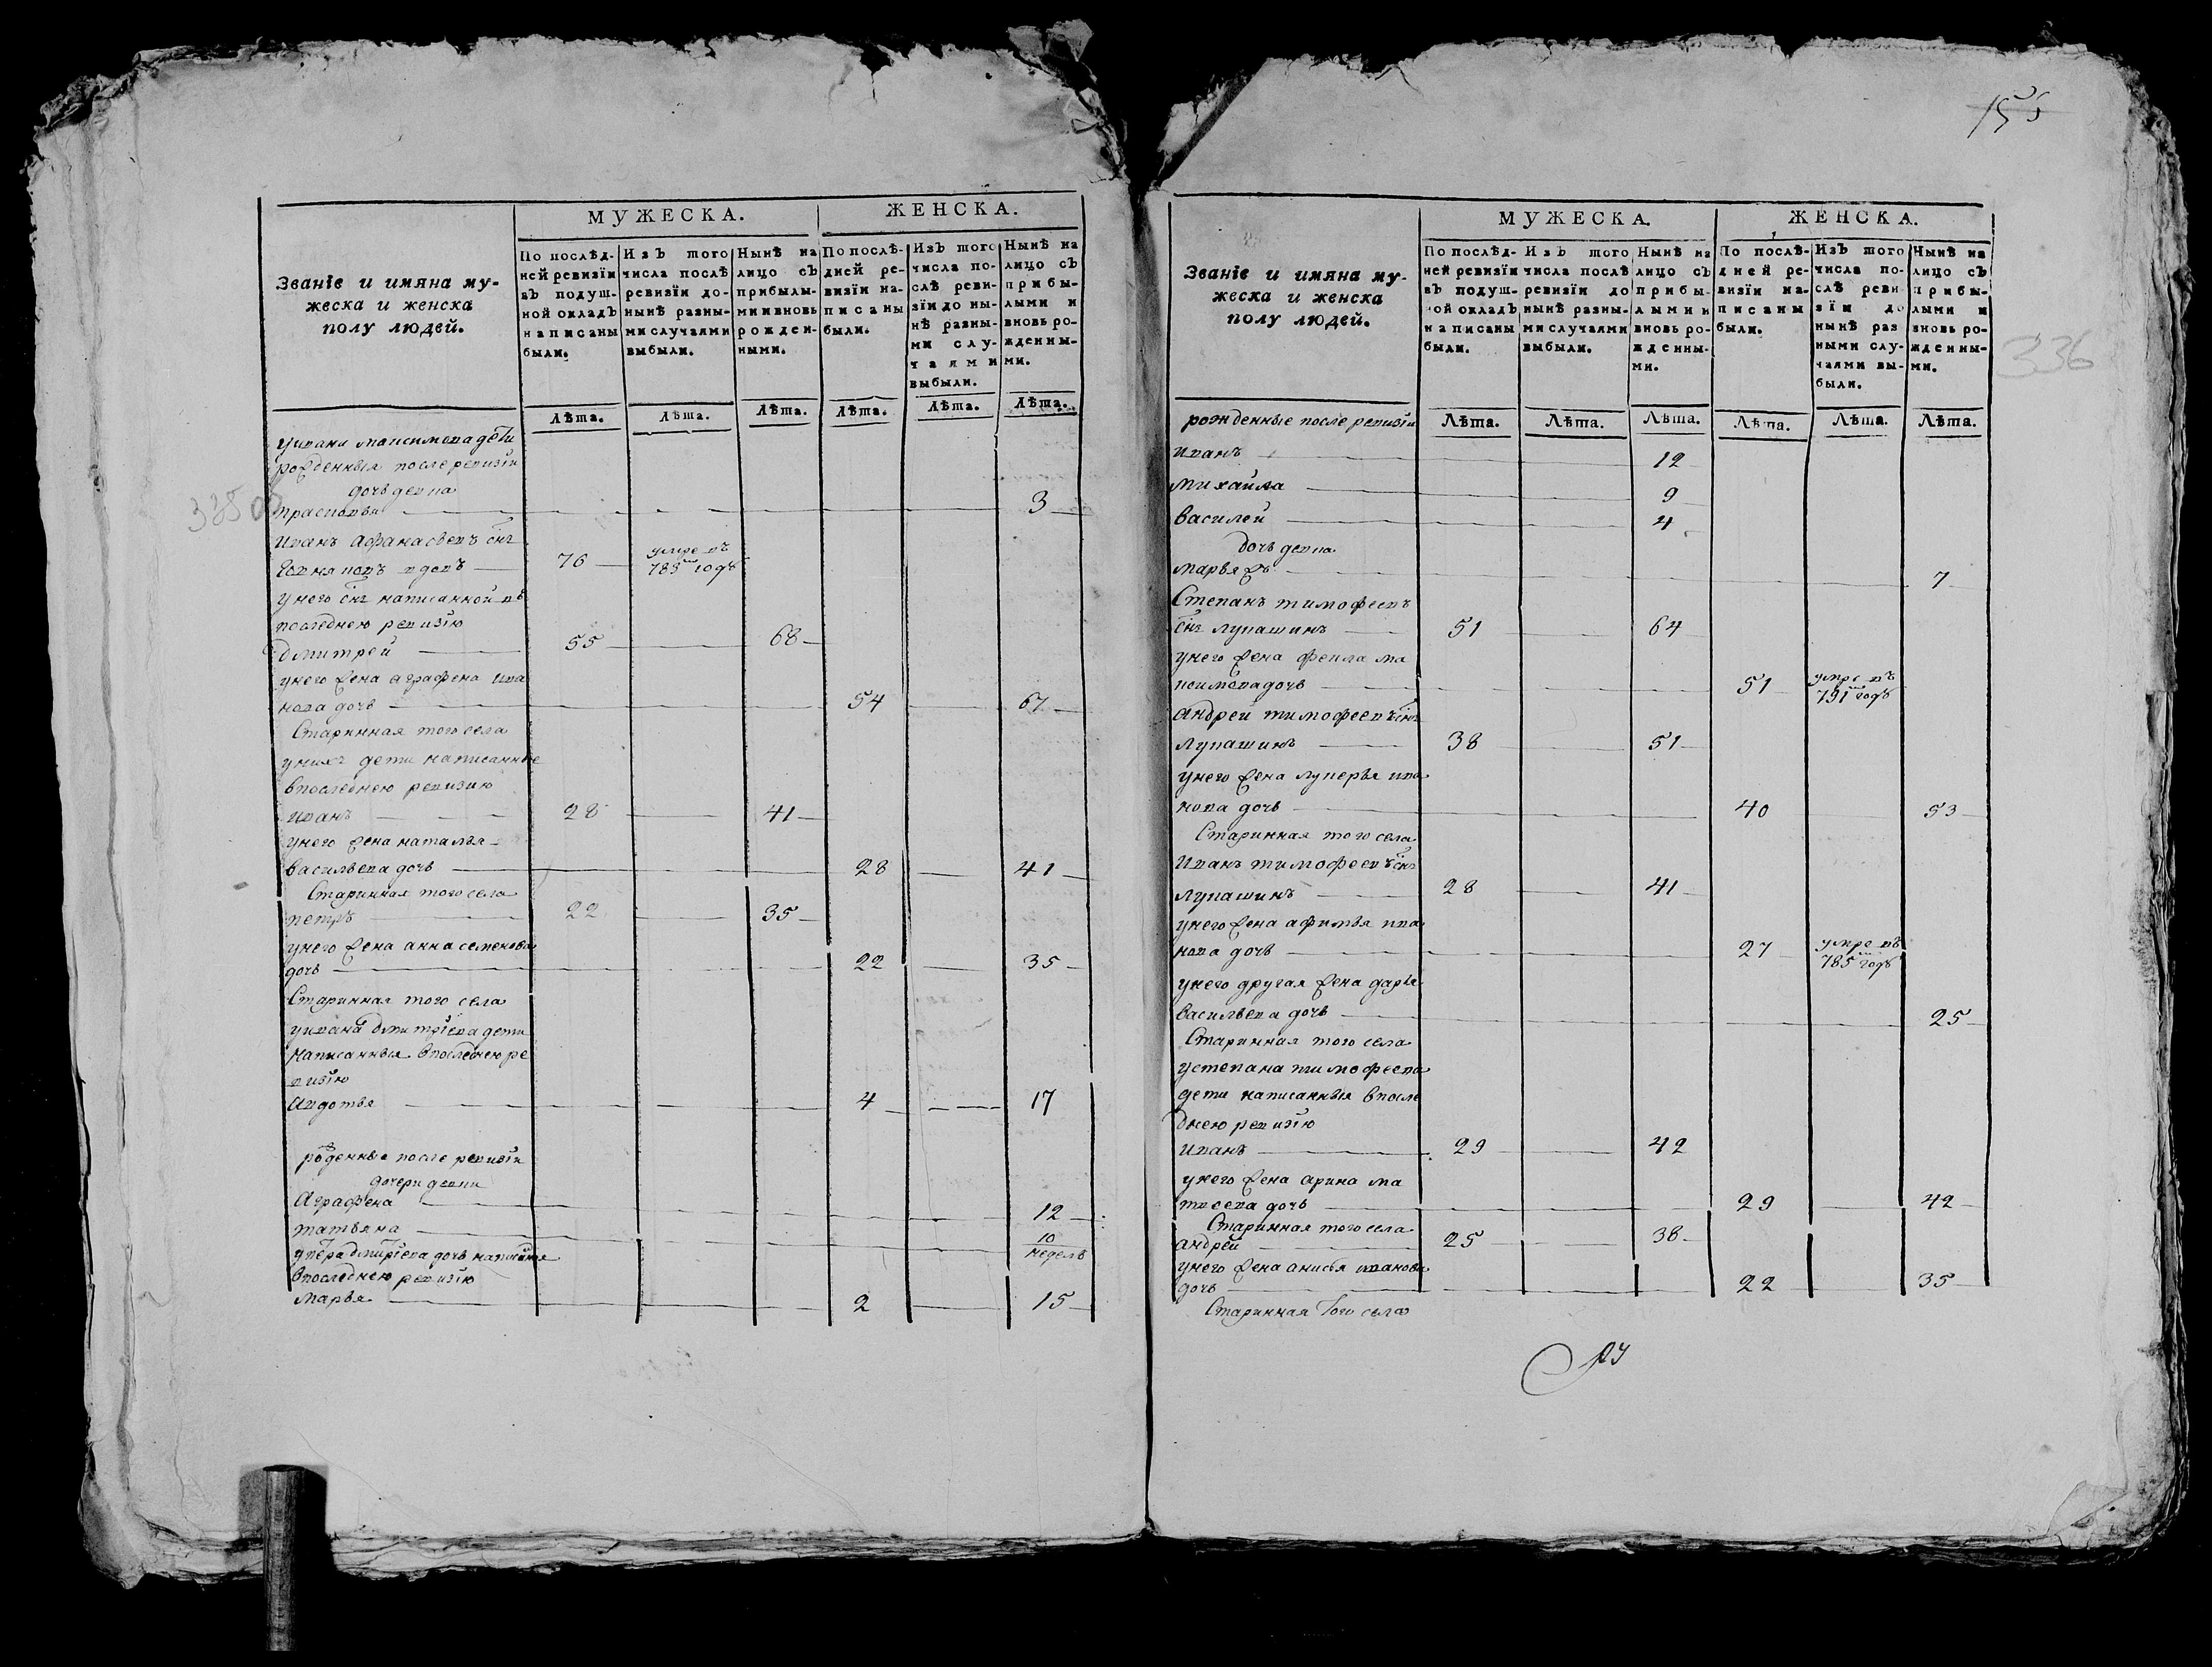 МУЖЕСКА.
ЖЕНСКА.
Званіе и имяна му-
жеска и женска
полу людей.
По послѣд-
ней ревизіи
въ подуш-
ной окладъ
написаны
были.
Изъ того
числа послѣ
ревизіи до-
нынѣ разны-
ми случаями
выбыли.
Нынѣ на
лицо съ
прибылы-
ми и вновь
рожден-
ными.
По послѣ-
дней ре-
визіи на-
писаны
были.
Изъ того
числа по-
слѣ реви-
зіи до ны-
нѣ разны-
ми слу-
чаями
выбыли.
Нынѣ на
лицо съ
прибы-
лыми и
вновь ро-
жденны-
ми.
Лѣта. Лѣта. Лѣта. Лѣта. Лѣта. Лѣта.
уивана максимова дети
рожденныя после ревизіи
дочь девка
прасковья 3
Иванъ Афанасьевъ снъ
вдовъ 76 умре въ
783м годѣ
унего снъ написанной въ
последнею ревизію
дмитрей 55 68
унего жена аграфена ива
нова дочь 54 67
Старинная того села
унихъ дети написанные
впоследнею ревизию
иванъ 28 41
унего жена наталья
васильева дочь 28 41
Старинная того села
петръ 22 35
унего жена анна семенова
дочь 22 35
Старинная того села
уивана дмитріева дети
написанныя впоследнею ре
визію
Авдотья 4 17
рожденные после ревизіи
дочери девки
Аграфена 12
татьяна 10
недель
упетра дмитріева дочь написанная
впоследнею ревизію
марья 2 15
155
336
МУЖЕСКА.
ЖЕНСКА.
Званіе и имяна му-
жеска и женска
полу людей.
По послѣд-
ней ревизіи
въ подуш-
ной окладъ
написаны
были.
Изъ того
числа послѣ
ревизіи до
нынѣ разны-
ми случаями
выбыли.
Нынѣ на
лицо съ
прибы-
лыми и
вновь ро-
жденны-
ми.
По послѣ-
дней ре-
визіи на-
писаны
были.
Изъ того
числа по-
слѣ реви-
зіи до
нынѣ раз
ными слу-
чаями вы-
были.
Нынѣ на
лицо съ
прибы-
лыми и
вновь ро-
жденны-
ми.
рожденные после ревизіи Лѣта. Лѣта. Лѣта. Лѣта. Лѣта. Лѣта.
иванъ 12
михайла 9
василей 4
дочь девка
марья 7
Степанъ тимофеевъ
снъ лукашинъ 51 64
унего жена фекла ма
ксимова дочь 51 умре въ
791м годѣ
андрей тимофеевъ снъ
лукашинъ 38 51
унего жена лукерья ива
нова дочь 40 53
Старинная того села
Иванъ тимофеевъ снъ
лукашинъ 28 41
унего жена афимья ива
нова дочь 27 умре въ
785м годѣ
унего другая жена дарья
васильева дочь 25
Старинная того села
устепана тимофеева
дети написанныя впосле
днею ревизію
иванъ 29 42
унего жена арина ма
твеева дочь 29 42
Старинная того села
андрей 25 38
унего жена анисья иванова
дочь 22 35
Старинная того села